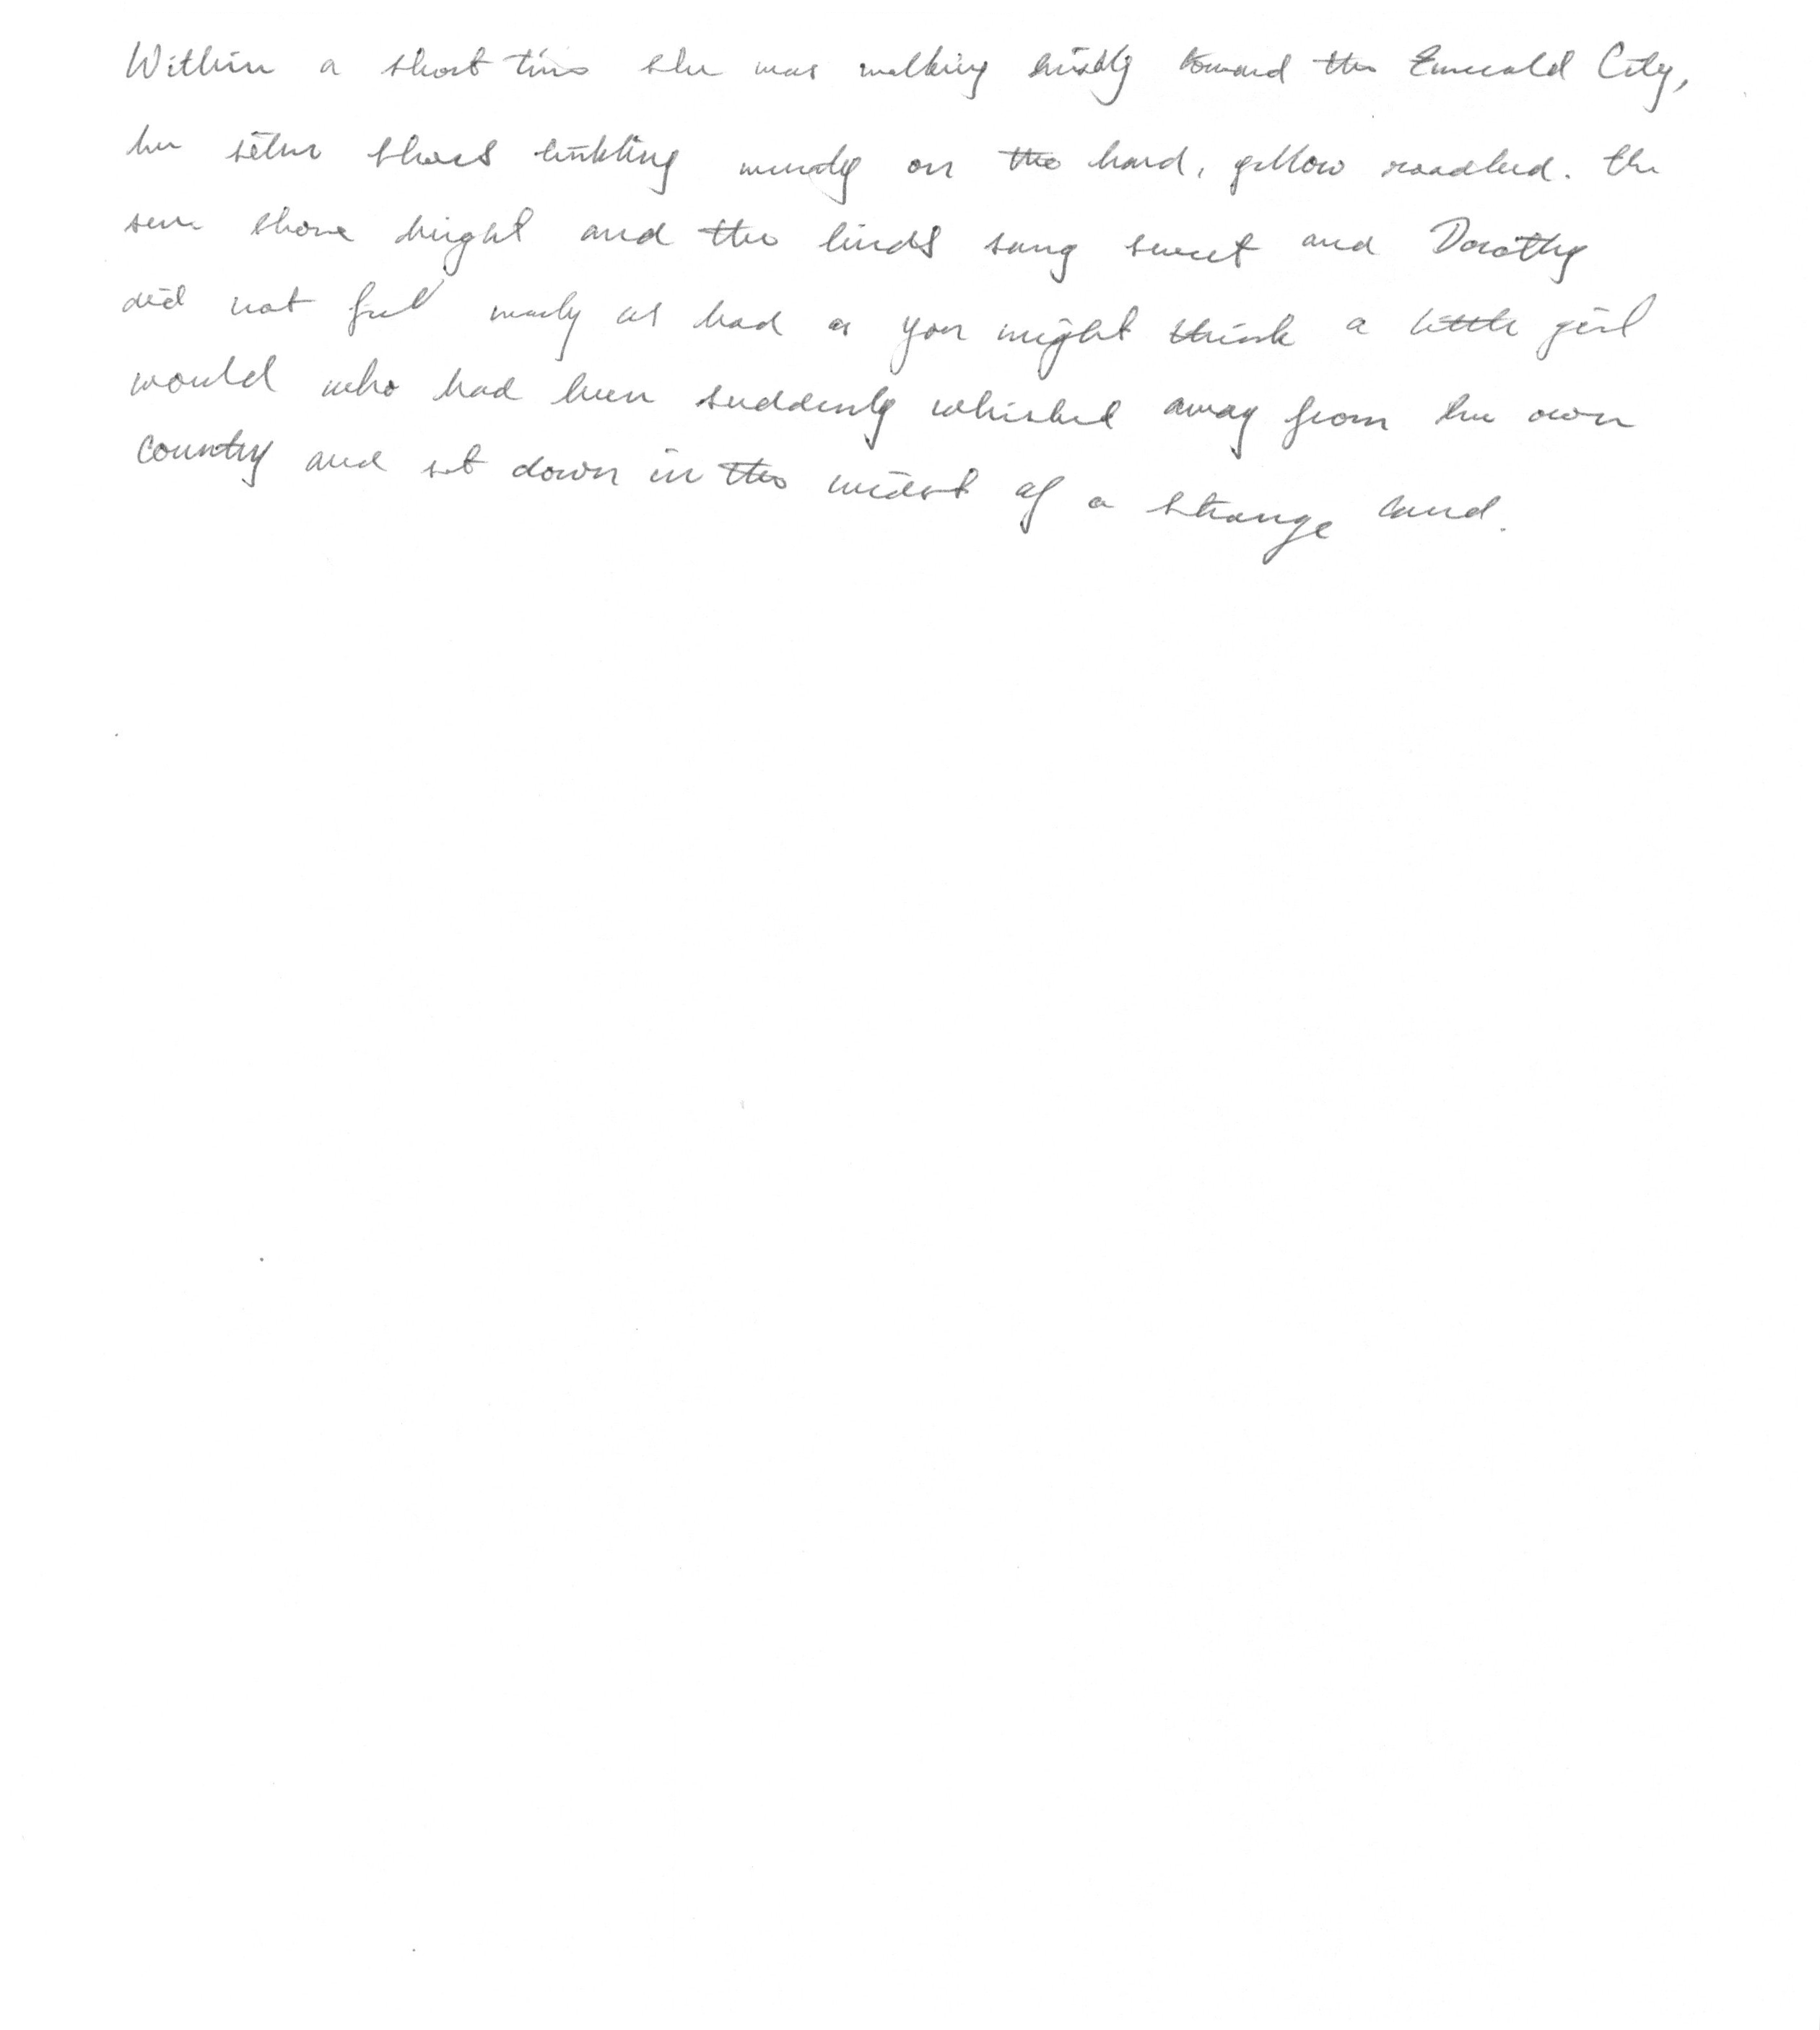 Within a short time she was walking briskly toward the Emerald City,
her silver shoes tinkling merrily on the hard, yellow roadbed. The
sun shone bright and the birds sang sweet and Dorothy
did not feel nearly as bad as you might think a little girl
would who had been suddenly whisked away from her own
country and set down in the midst of a strange land.